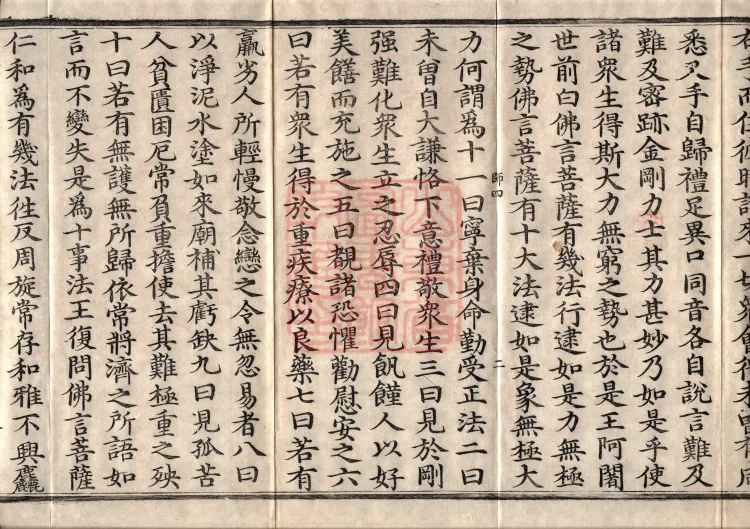 悉叉手自歸禮足異口同音各自說言難及
難及密跡金剛力士其力甚妙乃如是乎使
諸衆生得斯大力無窮之勢也於是王阿闍
世前白佛言菩薩有幾法行逮如是力無極
之勢佛言菩薩有十大法逮如是象無極大
師四 二
力何謂爲十一曰寧棄身命勤受正法二曰
未曾自大謙恪下意禮敬衆生三曰見於剛
强難化衆生立之忍辱四曰見飢饉人以好
美饍而充施之五曰覩諸恐懼勸慰安之六
曰若有衆生得於重疾療以良藥七曰若有
羸劣人所輕慢敬念戀之令無忽易者八曰
以淨泥水塗如來廟補其虧缺九曰見孤苦
人貧匱困厄常負重擔使去其難極重之殃
十曰若有無護無所歸依常將濟之所語如
言而不變失是爲十事法王復問佛言菩薩
仁和爲有幾法徃反周旋常存和雅不興麤